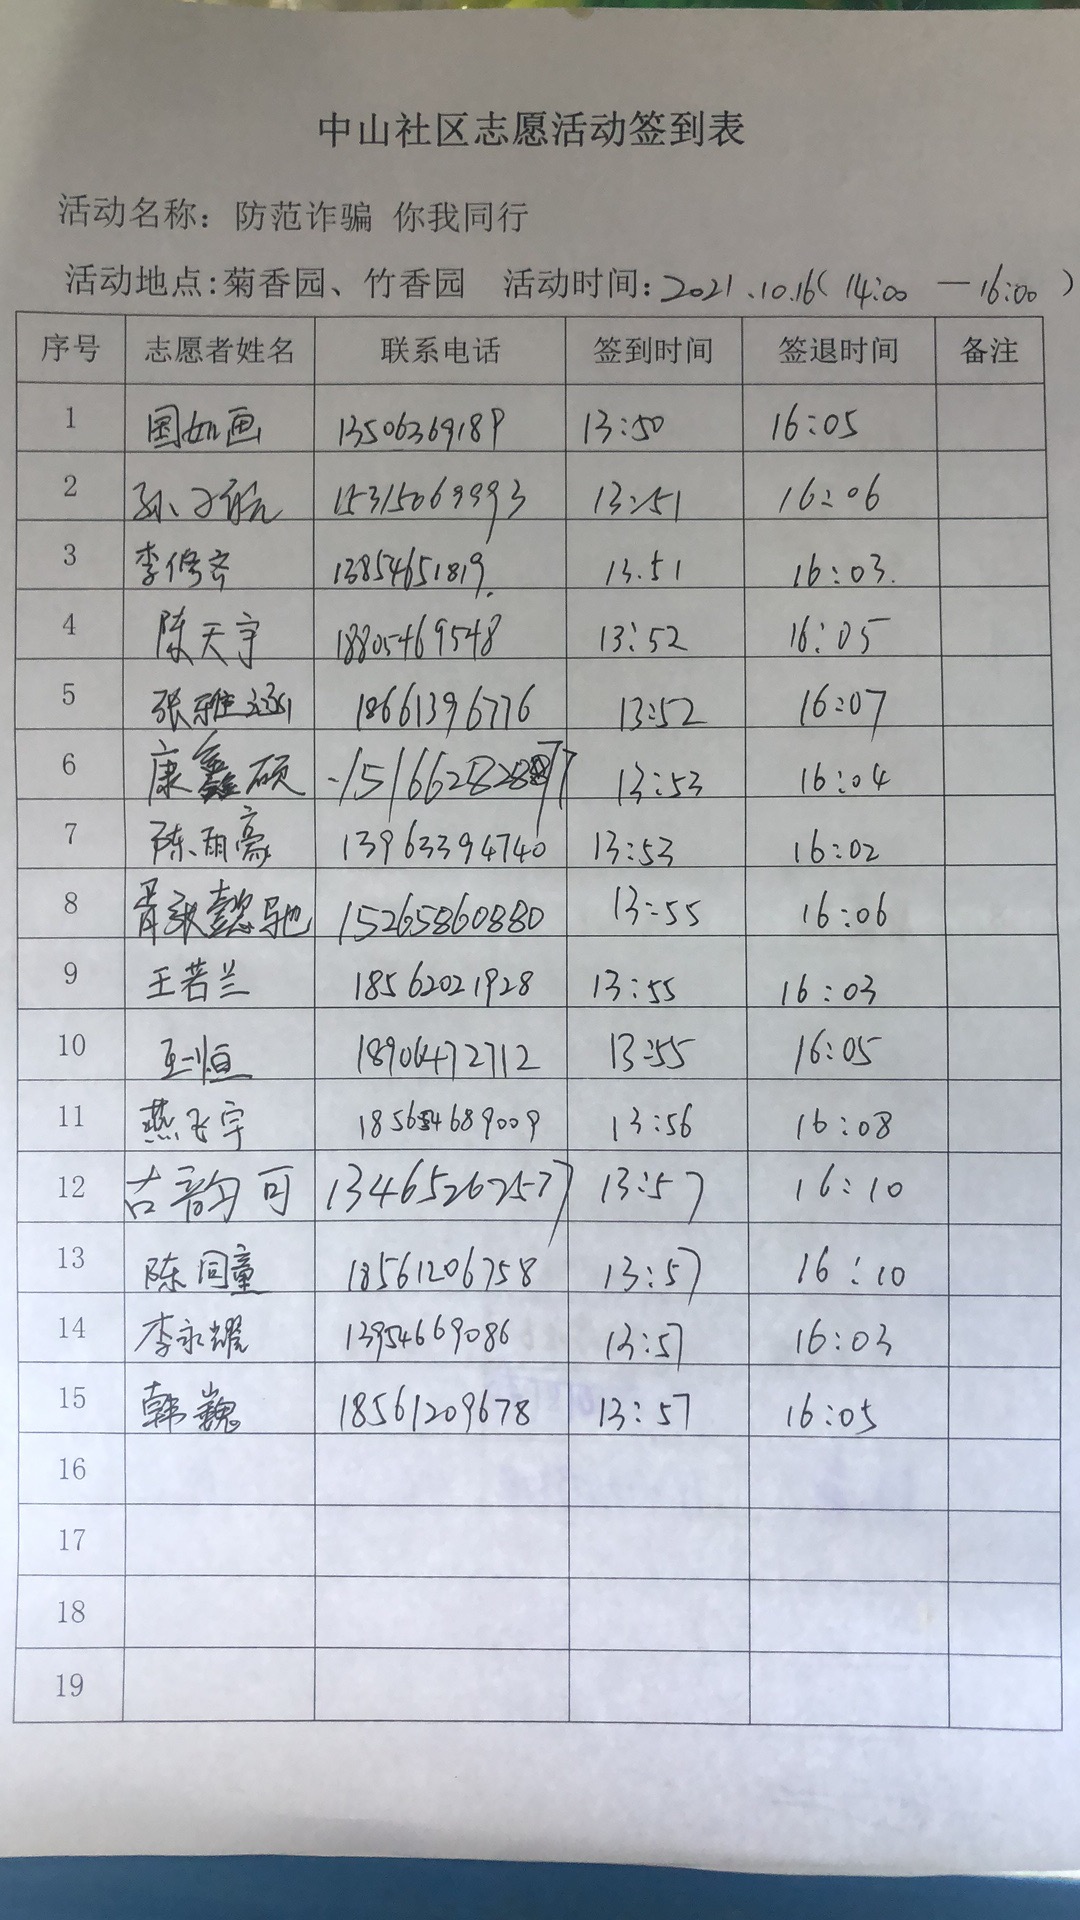 中山社区志愿活动签到表
活动名称：防范诈骗 你我同行
活动地点:菊香园、竹香园 活动时间:2021.10.16(14:00 — 16:00)
序号 志愿者姓名 联系电话 签到时间 签退时间 备注
1 国如画 13506369189 13:50 16:05
2 孙子航 15315069993 13:51 16:06
3 李修齐 13854651819. 13.51 16:03.
4 陈天宇 18805469548 13:52 16:05
5 张雅涵 18661396776 13:52 16:07
6 康鑫硕 13:53 16:04
7 陈雨豪 13963394740 13:53 16:02
8 胥懿驰 15265860880 13:55 16:06
9 王若兰 18562021928 13:55 16:03
10 王恒 18906472712 13:55 16:05
11 燕飞宇 13:56 16:08
12 古韵可 13465267577 13:57 16:10
13 陈同童 18561206758 13:57 16:10
14 李永耀 13954669086 13:57 16:03
15 韩巍 18561209678 13:57 16:05
16
17
18
19